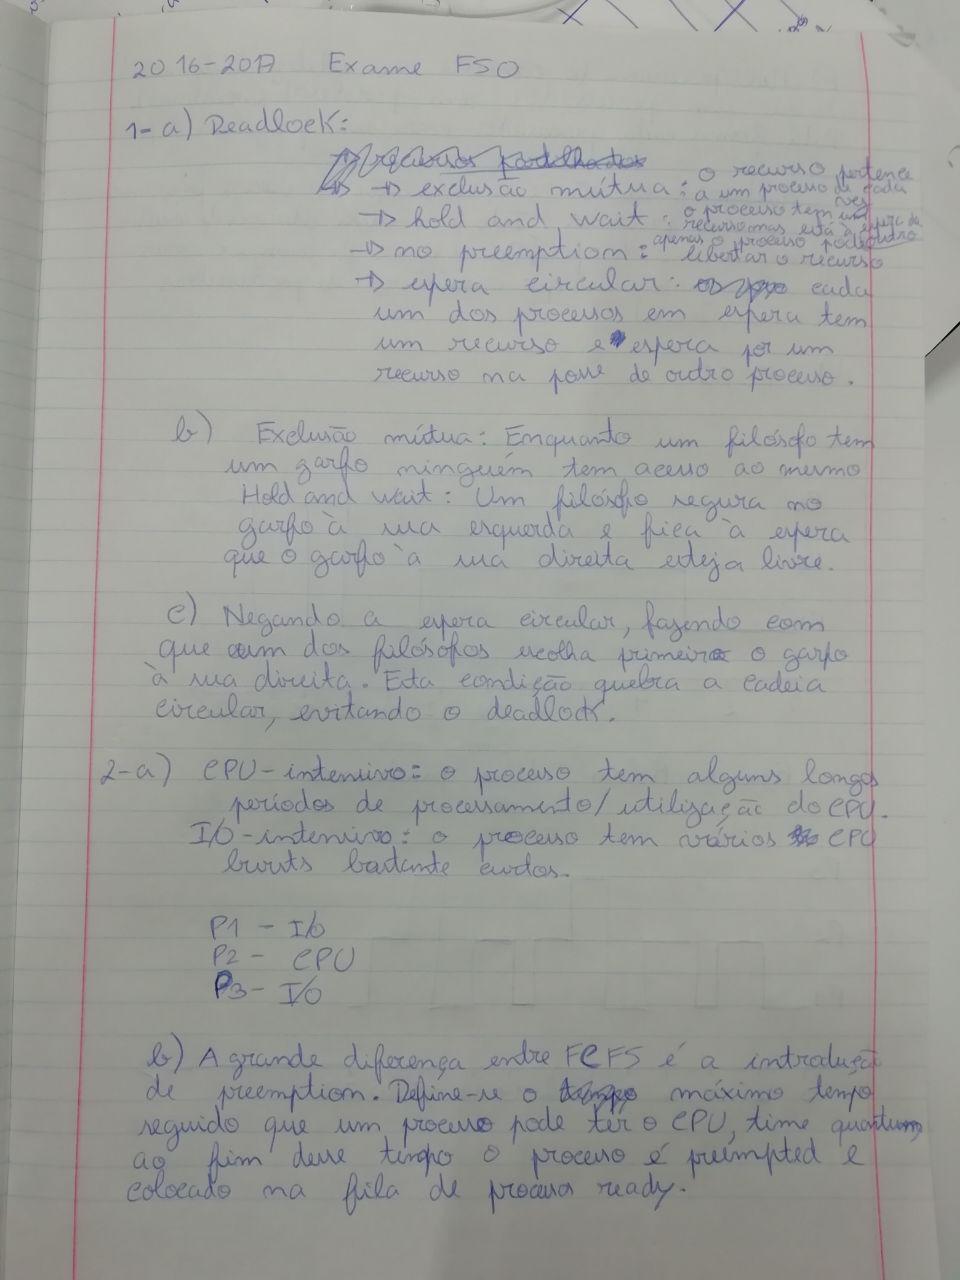 2016-2017 Exame FSO
1- a) Deadlock:
→ exclusão mútua: o recurso pertence
a um processo de cada
vez
→ hold and wait: o processo tem um
recurso mas está à espera de
outro
→ no preemption: apenas o processo pode
libertar o recurso
→ espera circular: cada
um dos processos em espera tem
um recurso e espera por um
recurso na posse de outro processo.
b) Exclusão mútua: Enquanto um filósofo tem
um garfo ninguém tem acesso ao mesmo
Hold and wait: Um filósofo segura no
garfo à sua esquerda e fica à espera
que o garfo à sua direita esteja livre.
c) Negando a espera circular, fazendo com
que um dos filósofos escolha primeiro o garfo
à sua direita. Esta condição quebra a cadeia
circular, evitando o deadlock.
2-a) CPU-intensivo: o processo tem alguns longos
períodos de processamento/utilização do CPU.
I/O-intensivo: o processo tem vários CPU
bursts bastante curtos.
P1 - I/O
P2 - CPU
P3 - I/O
b) A grande diferença entre FCFS é a introdução
de preemption. Define-se o máximo tempo
seguido que um processo pode ter o CPU, time quantum,
ao fim desse tempo o processo é preempted e
colocado na fila de processos ready.